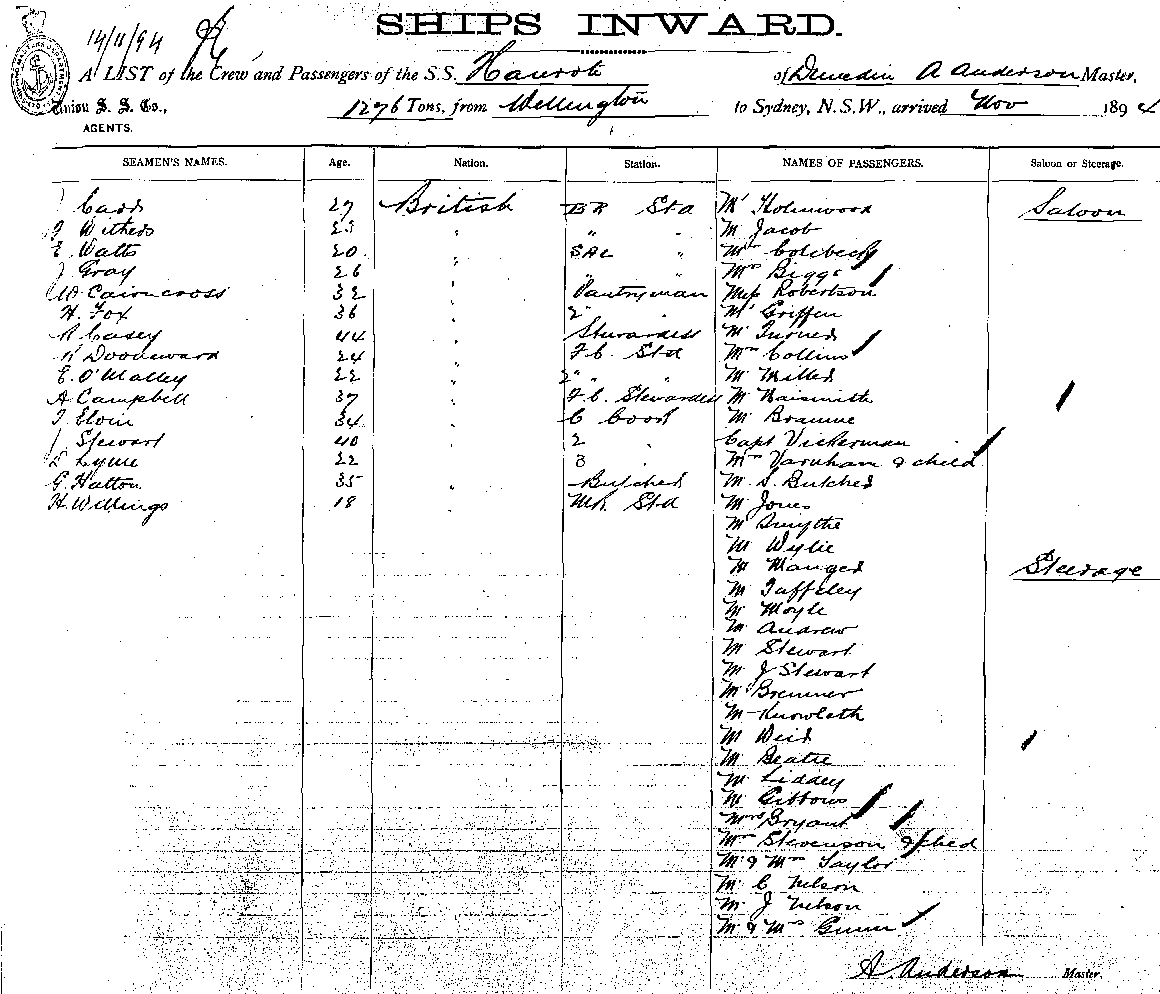 SHIPS INWARD.
14/11/94
A LIST of the Crew and Passengers of the S.S. Hauroto of Dunedin A Anderson Master,
Union S. S. Co., 1276 Tons, from Wellington to Sydney, N.S.W., arrived Nov 1894
AGENTS.
SEAMEN'S NAMES. Age. Nation. Station. NAMES OF PASSENGERS. Saloon or Steerage.
J Cass 27 British BR Std Mr Holmwood Saloon
J Withers 23 " " " M Jacob
E. Watts 20 " SAL " Mrs Colebeck
J Gray 26 " " " Mrs Biggs
W Cairncross 32 " Pantryman Miss Robertson
H. Fox 36 " 2 " Mr Griffen
R Casey 44 " Stewardess Mr Turner
R Doodeward 24 " F.C. Std Mrs Collins
E. O'Malley 22 " 2 " " M Miller
A Campbell 37 " F.C. Stewardess M Naismith
J Elvin 34 " C Cook M Bramme
J Stewart 40 " 2 " Capt Vickerman
Lyme 22 " 3 " Mrs Varnham & child
G. Hatton 35 " Butcher M. S. Butcher
H. Willings 18 MR Std M Jones
M Smythe
M Wylie
M Manger Steerage
M Taffeley
M Moyle
M Andrew
M Stewart
M J Stewart
M Bremner
M
M Weir
M Beatie
M Liddey
M Gibbons
Mrs Bryant
Mrs Stevenson & child
M & Mrs Taylor
M C Nelson
M J Nelson
M & Mrs Gunn
A. Anderson Master.